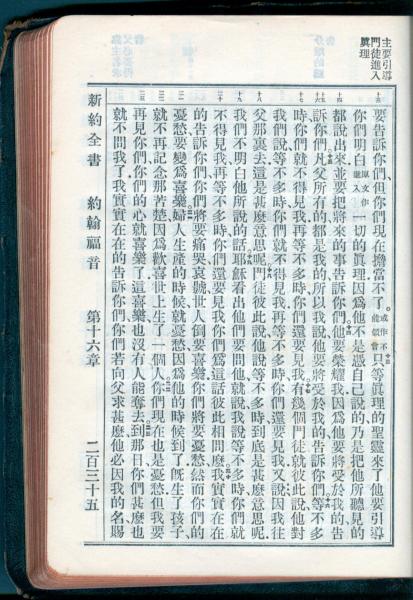 主要引導
門徒進入
眞理
要告訴你們但你們現在擔當不了或作不能領會只等眞理的聖靈來了他要引導
你們明白原文作進入一切的眞理因爲他不是憑自己說的乃是把他所聽見的
都說出來並要把將來的事告訴你們他要榮耀我因爲他要將受於我的告
訴你們凡父所有的都是我的所以我說他要將受於我的告訴你們等不多
時你們就不得見我再等不多時你們還要見我有幾個門徒就彼此說他對
我們說等不多時你們就不得見我再等不多時你們還要見我又說因我往
父那裏去這是甚麼意思呢門徒彼此說他說等不多時到底是甚麼意思呢
我們不明白他所說的話耶穌看出他們要問他就說我說等不多時你們就
不得見我再等不多時你們還要見我你們爲這話彼此相問麼我實實在在
的告訴你們你們將要痛哭哀號世人倒要喜樂你們將要憂愁然而你們的
憂愁要變爲喜樂婦人生產的時候就憂愁因爲他的時候到了旣生了孩子
就不再記念那苦楚因爲歡喜世上生了一個人你們現在也是憂愁但我要
再見你們你們的心就喜樂了這喜樂也沒有人能奪去到那日你們甚麼也
就不問我了我實實在在的告訴你們你們若向父求甚麼他必因我的名賜
新約全書 約翰福音 第十六章 二百三十五